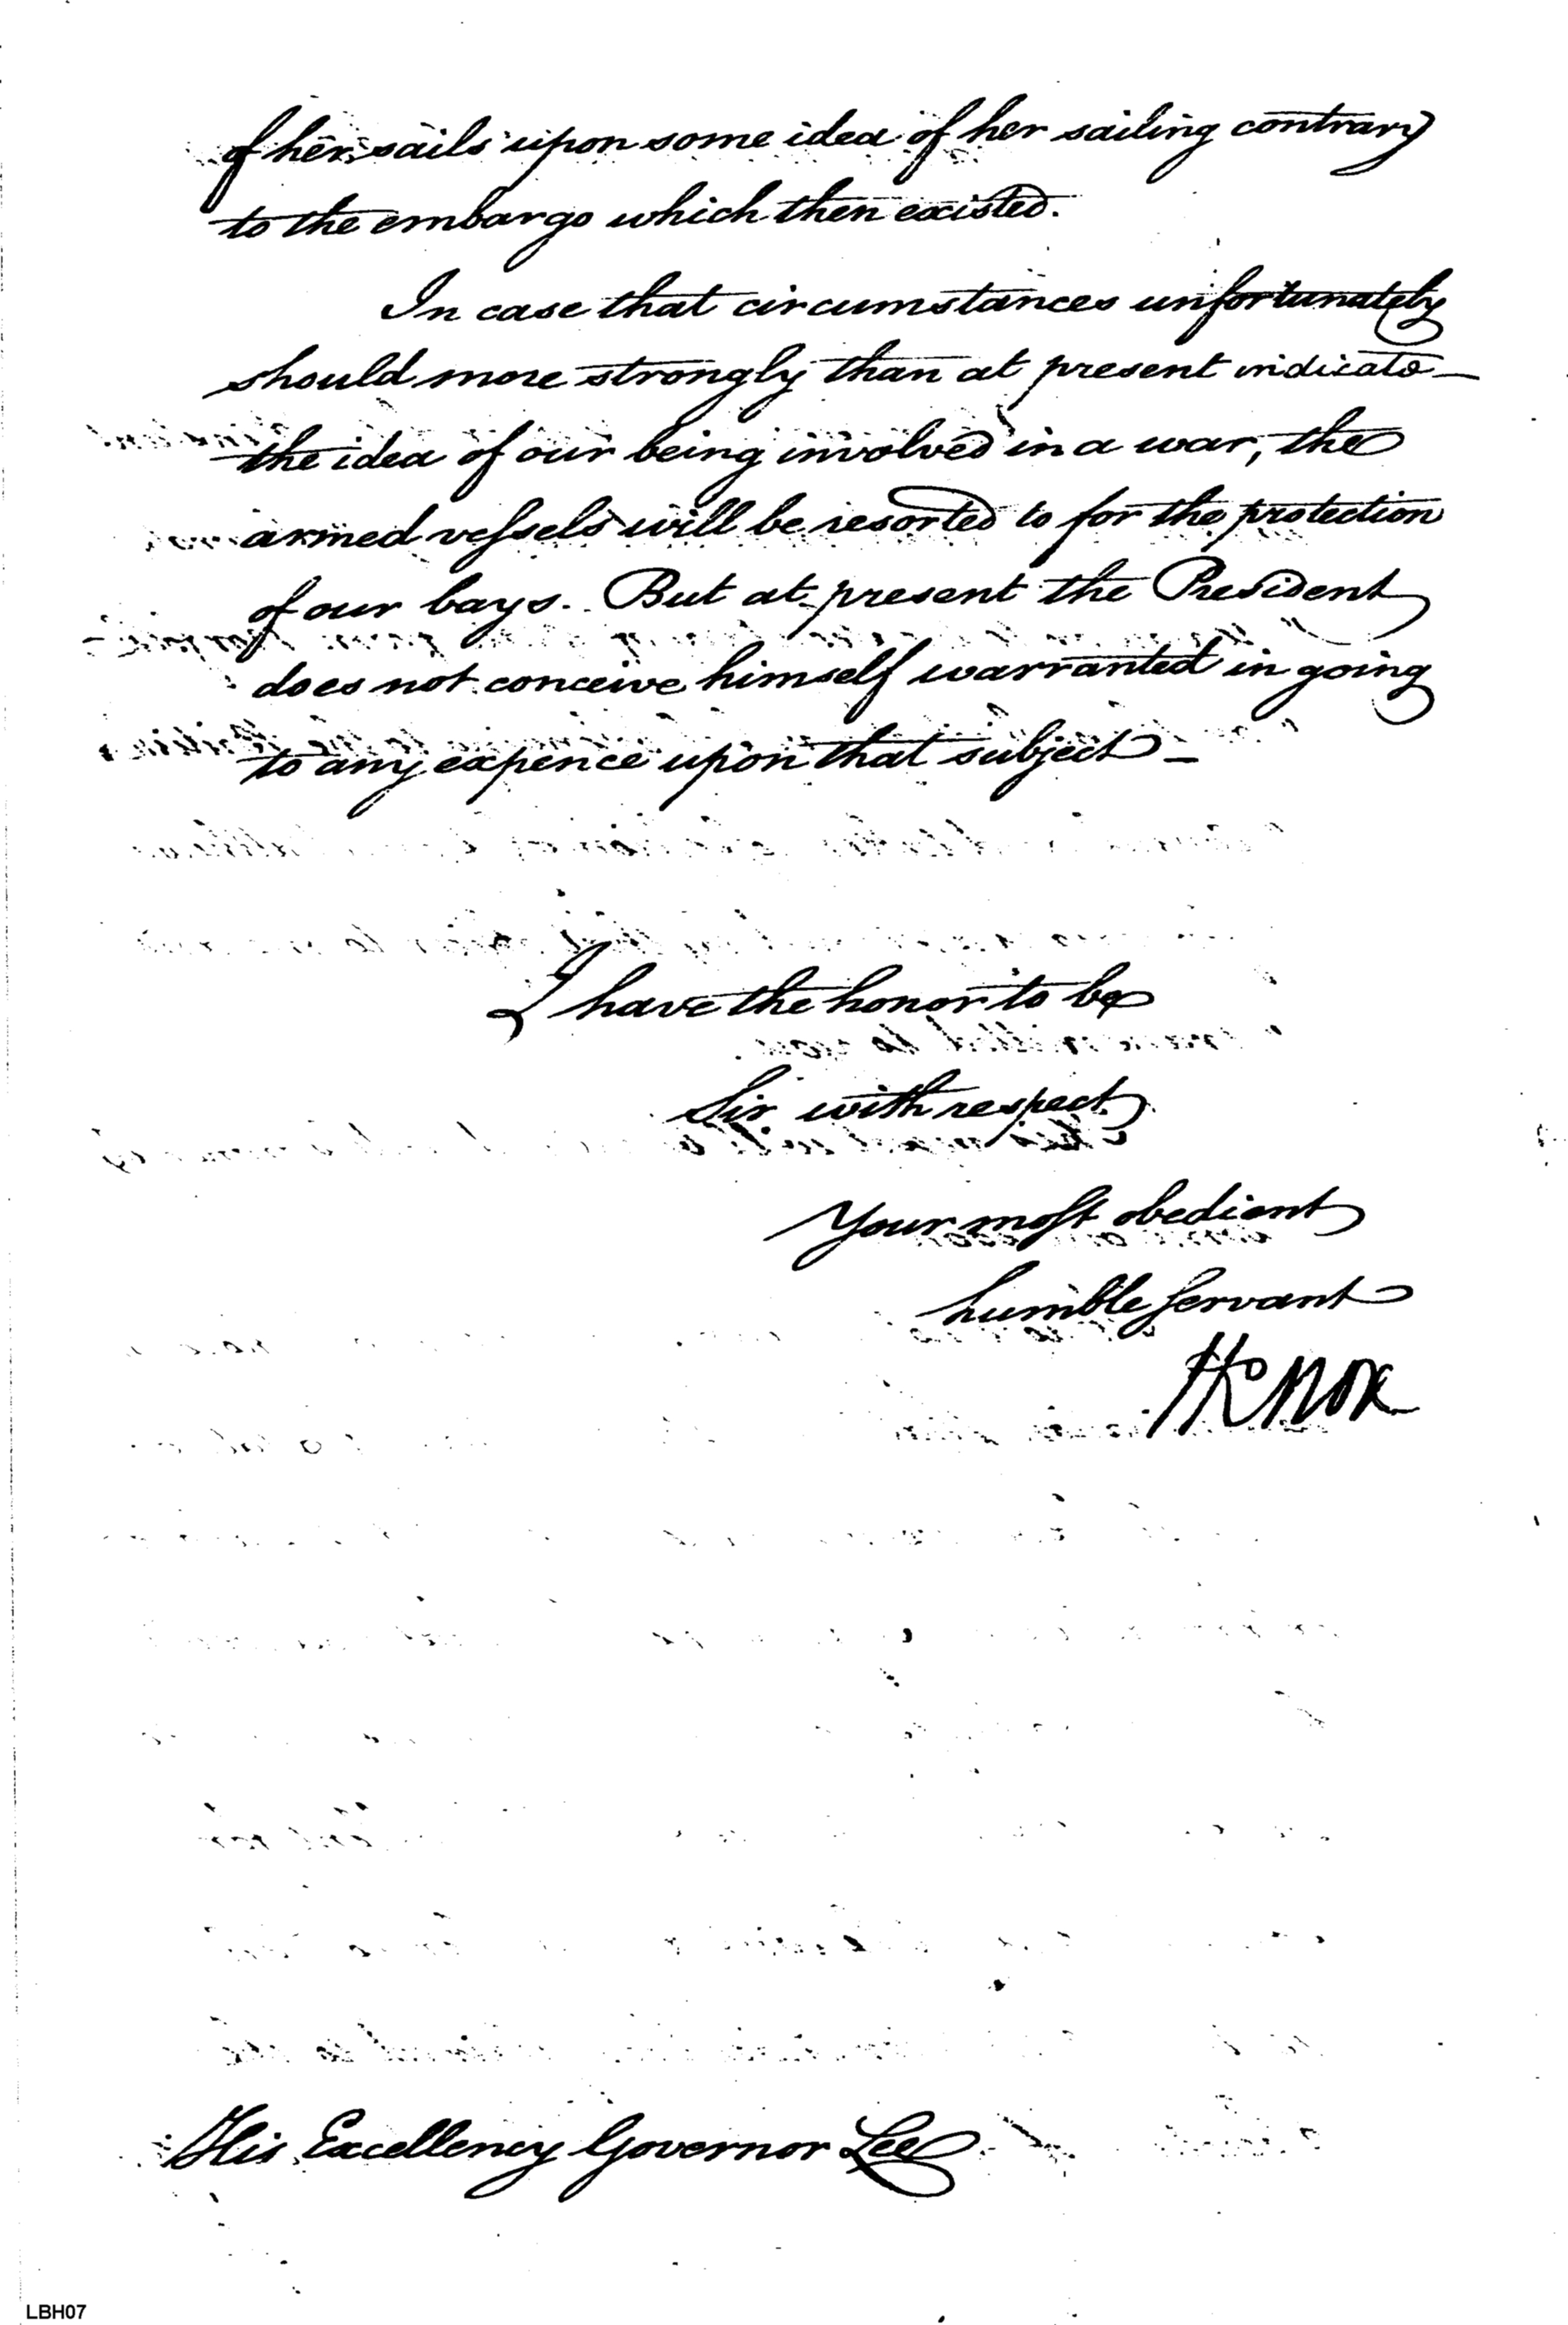 of her sails upon some idea of her sailing contrary
to the embargo which then existed.
In case that circumstances unfortunately
should more strongly than at present indicate
the idea of our being involved in a war, the
armed vessels will be resorted to for the protection
of our bays. But at present the President
does not conceive himself warranted in going
to any expence upon that subject —
I have the honor to be
Sir with respect
Your most obedient
humble servant
HKnox
His Excellency Governor Lee
LBH07